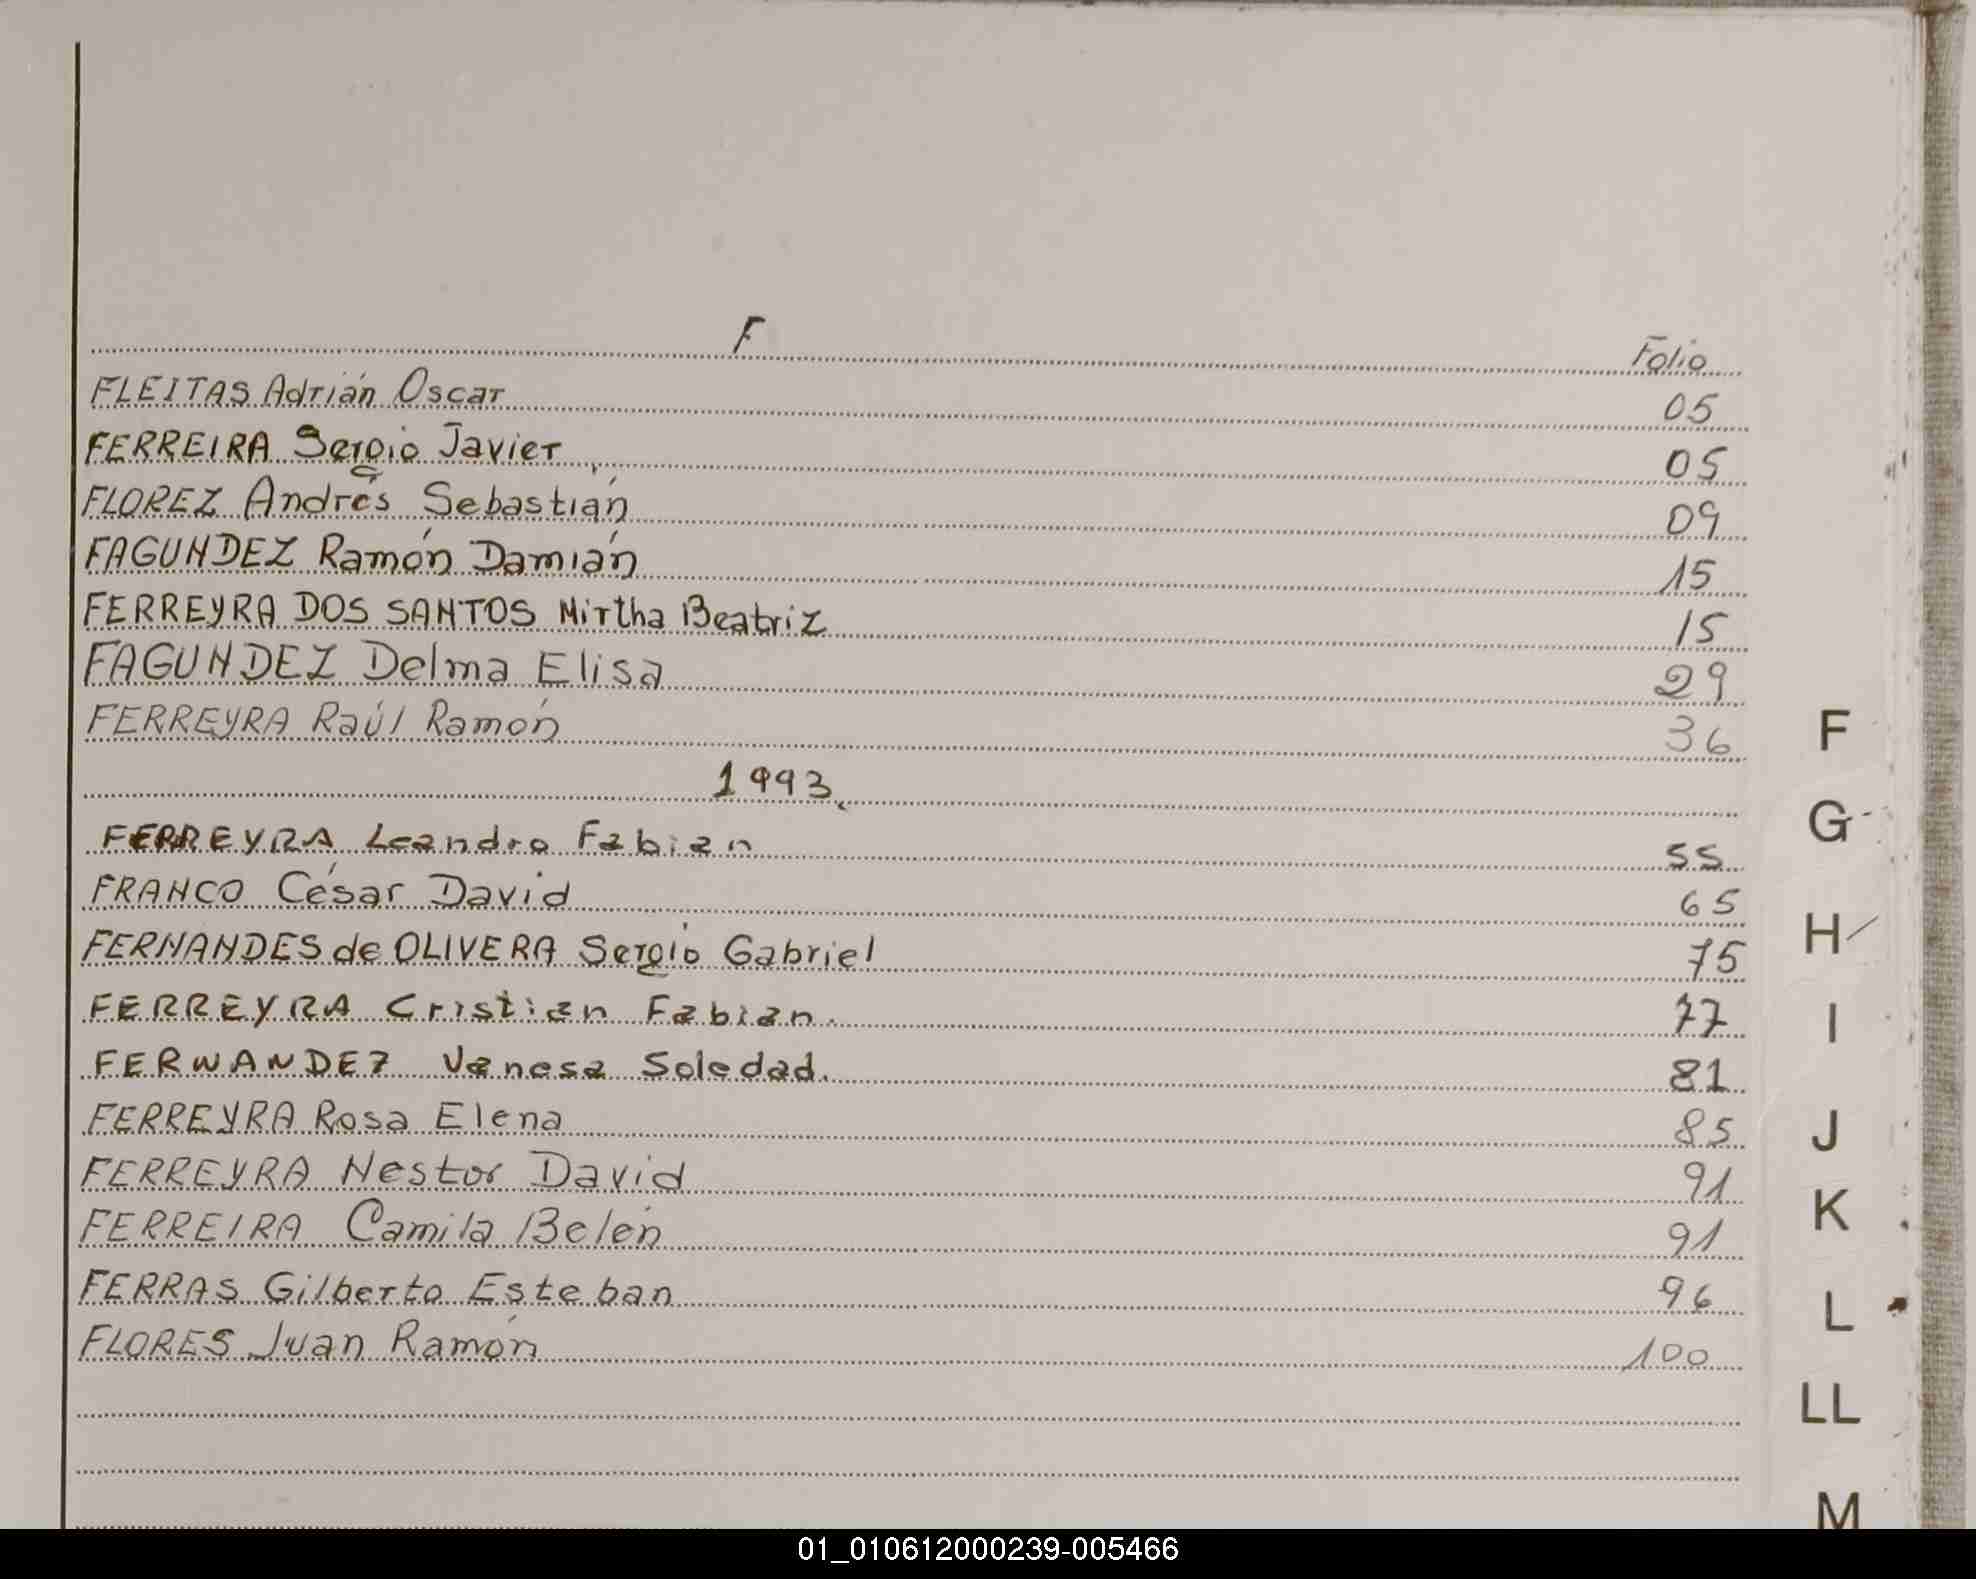 F Folio
FLEITAS Adrián Oscar 05
FERREIRA Sergio Javier 05
FLOREZ Andrés Sebastián 09
FAGUNDEZ Ramón Damián 15
FERREYRA DOS SANTOS Mirtha Beatriz 15
FAGUNDEZ Delma Elisa 29
FERREYRA Raúl Ramón 36
1993
FERREYRA Leandro Fabian 55
FRANCO César David 65
FERNANDES de OLIVERA Sergio Gabriel 75
FERREYRA Cristian Fabian. 77
FERNANDEZ Vanesa Soledad. 81
FERREYRA Rosa Elena 85
FERREYRA Nestor David 91
FERREIRA Camila Belén 91
FERRAS Gilberto Esteban 96
FLORES Juan Ramón 100
F
G
H
I
J
K
L
LL
M
01_010612000239-005466